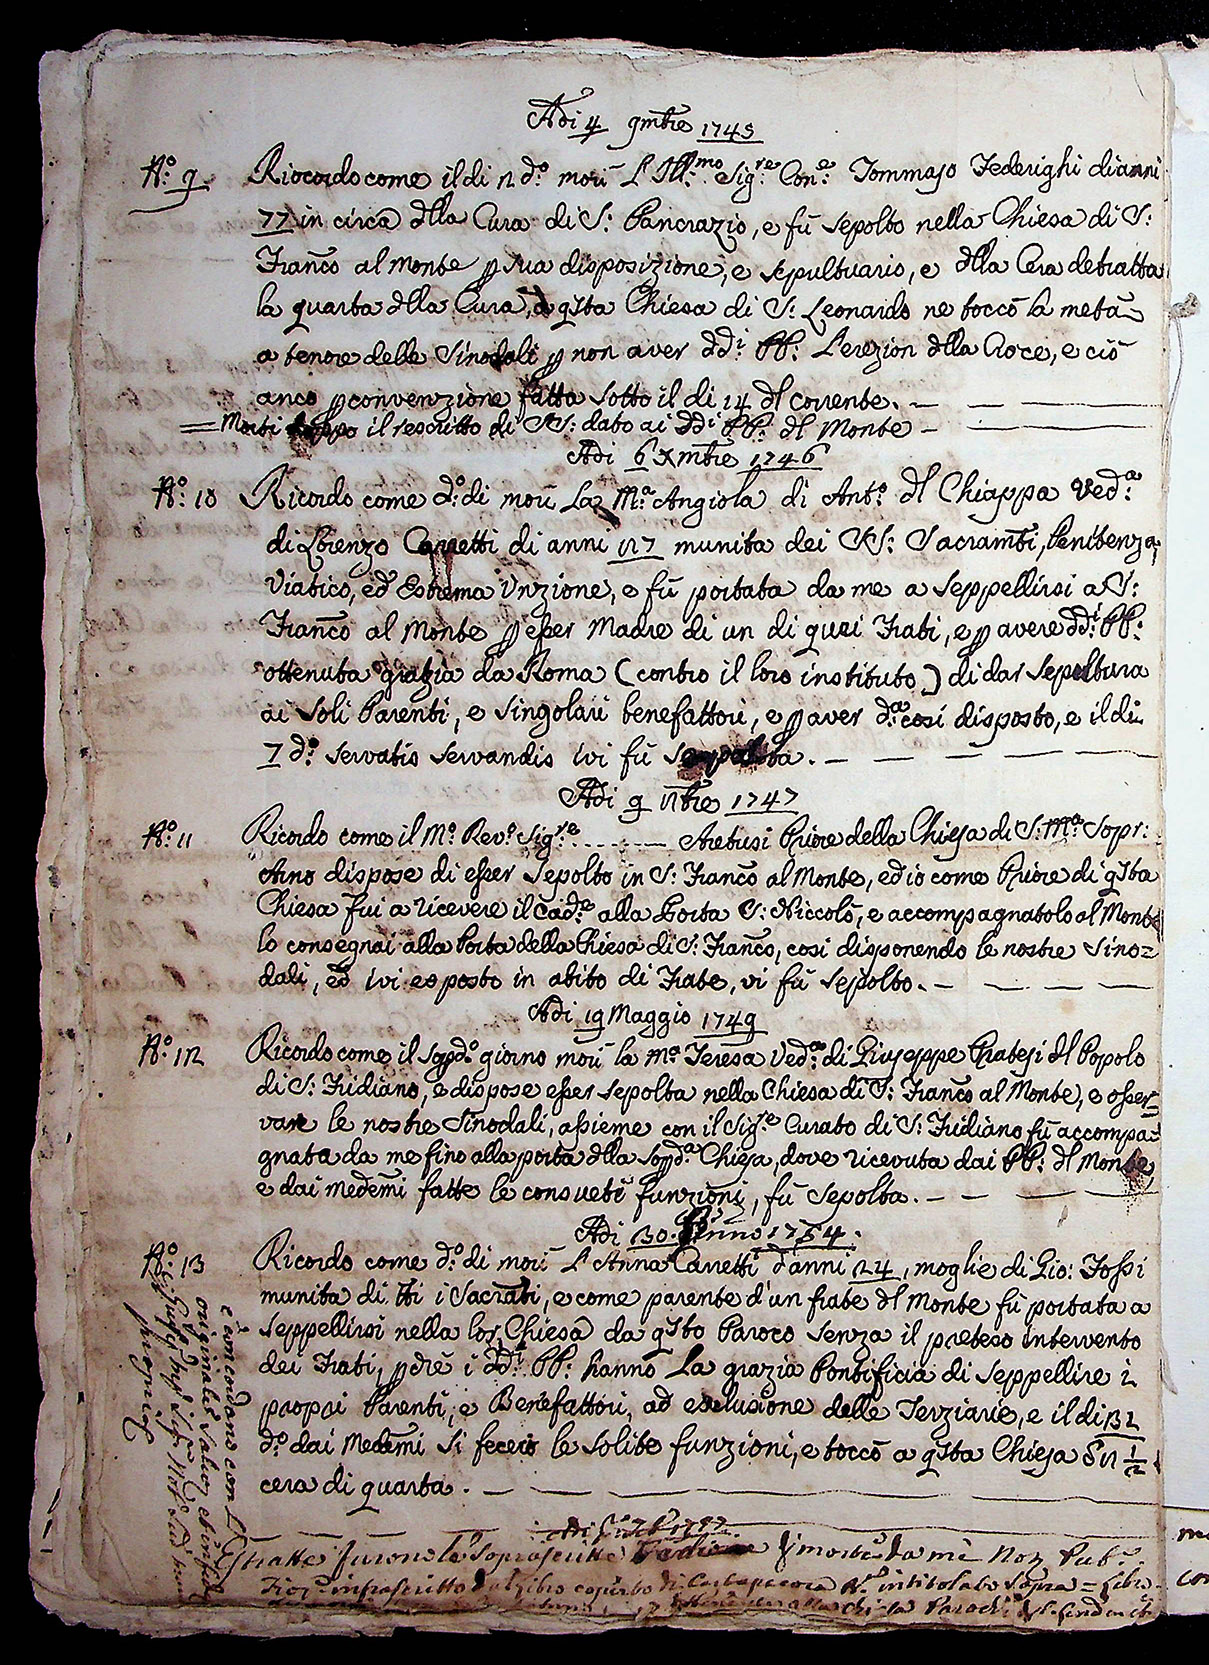 Adi 4 9mbre 1745
N.º 9 Ricordo come il di 2 d.º morì L'Ill.mo Sig.re Con.e Tommaso Federighi di anni
77 in circa dlla Cura di S: Pancrazio, e fù sepolto nella Chiesa di S:
Franc̃o al Monte p sua disposizione, e sepultuario, e dlla Cera detratta
la quarta dlla Cura, a q̃sta Chiesa di S: Leonardo ne toccò la metà
a tenore delle Sinodali p non aver dd.i PP: L'erezion dlla Croce, e ciò
anco p convenzione fatta sotto il di 14 dl corrente.
= Morti il rescritto di SS: dato ai dd.i PP: dl Monte
Adi 6 Xmbre 1746
N.º 10 Ricordo come d.º di morì La M.a Angiola di Ant.º dl Chiappa Ved.a
di Lorenzo di anni 27 munita dei SS: Sacramti, Penitenza,
Viatico, ed Estrema Unzione, e fù portata da me a seppellirsi a S:
Franc̃o al Monte p esser Madre di un di quei Frati, e p avere dd.i PP:
ottenuta grazia da Roma (contro il loro instituto) di dar sepultura
ai soli Parenti, e singolari benefattori, e p aver d.a così disposto, e il di
7 d.º servatis servandis ivi fù
Adi 9 1747
N.º 11 Ricordo come il M.º Rev.º Sig.re ........ Aretusi Priore della Chiesa di S: M.a Sopr:
Arno dispose di esser sepolto in S: Franc̃o al Monte, ed io come Priore di q̃sta
Chiesa fui a ricevere il Cad.e alla Porta S: Niccolò, e accompagnatolo al Monte
lo consegnai alla Porta della Chiesa di S: Franc̃o, così disponendo le nostre Sino=
dali, ed ivi esposto in abito di Frate, vi fù sepolto.
Adi 19 Maggio 1749
N.º 12 Ricordo come il sopd.º giorno morì la M.a Teresa Ved.a di Giuseppe Pratesi dl Popolo
di S: Fridiano, e dispose esser sepolta nella Chiesa di S: Franc̃o al Monte, e osser=
vare le nostre Sinodali, assieme con il Sig.re Curato di S: Fridiano fù accompa=
gnata da me fino alla porta dlla sopd.a Chiesa, dove ricevuta dai PP: dl Monte,
e dai medemi fatte le consuete funzioni, fù sepolta.
Adi 30. 1754.
N.º 13 Ricordo come d.º di morì L'Anna Canetti d'anni 24, moglie di Gio: Fossi
munita di tti i Sacrãti, e come parente d'un frate dl Monte fù portata a
seppellirsi nella lor Chiesa da q̃sto Paroco senza il preteso intervento
dei Frati, pchè i dd.i PP: hanno La grazia Pontificia di seppellire i
proprj Parenti, e Benefattori, ad esclusione delle Terziarie, e il di 31
d.º dai Medemi si fecero le solite funzioni, e toccò a q̃sta Chiesa 2 1/2
cera di quarta.
Estratte furono le soprascritte da me Not. Pub.
Fior.º infrascritto dal libro coperto di Cartapecora intitolato sopra = Libro
e concordono con L'
originale salvo